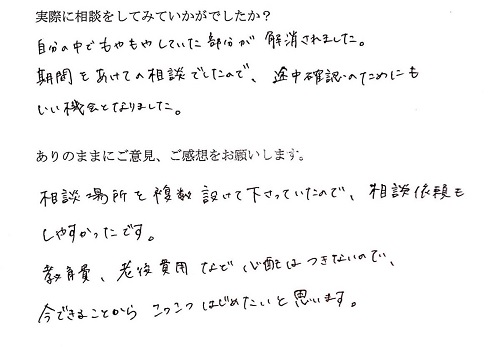 実際に相談をしてみていかがでしたか？
自分の中でもやもやしていた部分が解消されました。
期間をあけての相談でしたので、途中確認のためにも
いい機会となりました。
ありのままにご意見、ご感想をお願いします。
相談場所を複数設けて下さっていたので、相談依頼も
しやすかったです。
教育費、老後費用など心配はつきないので、
今できることからコツコツはじめたいと思います。